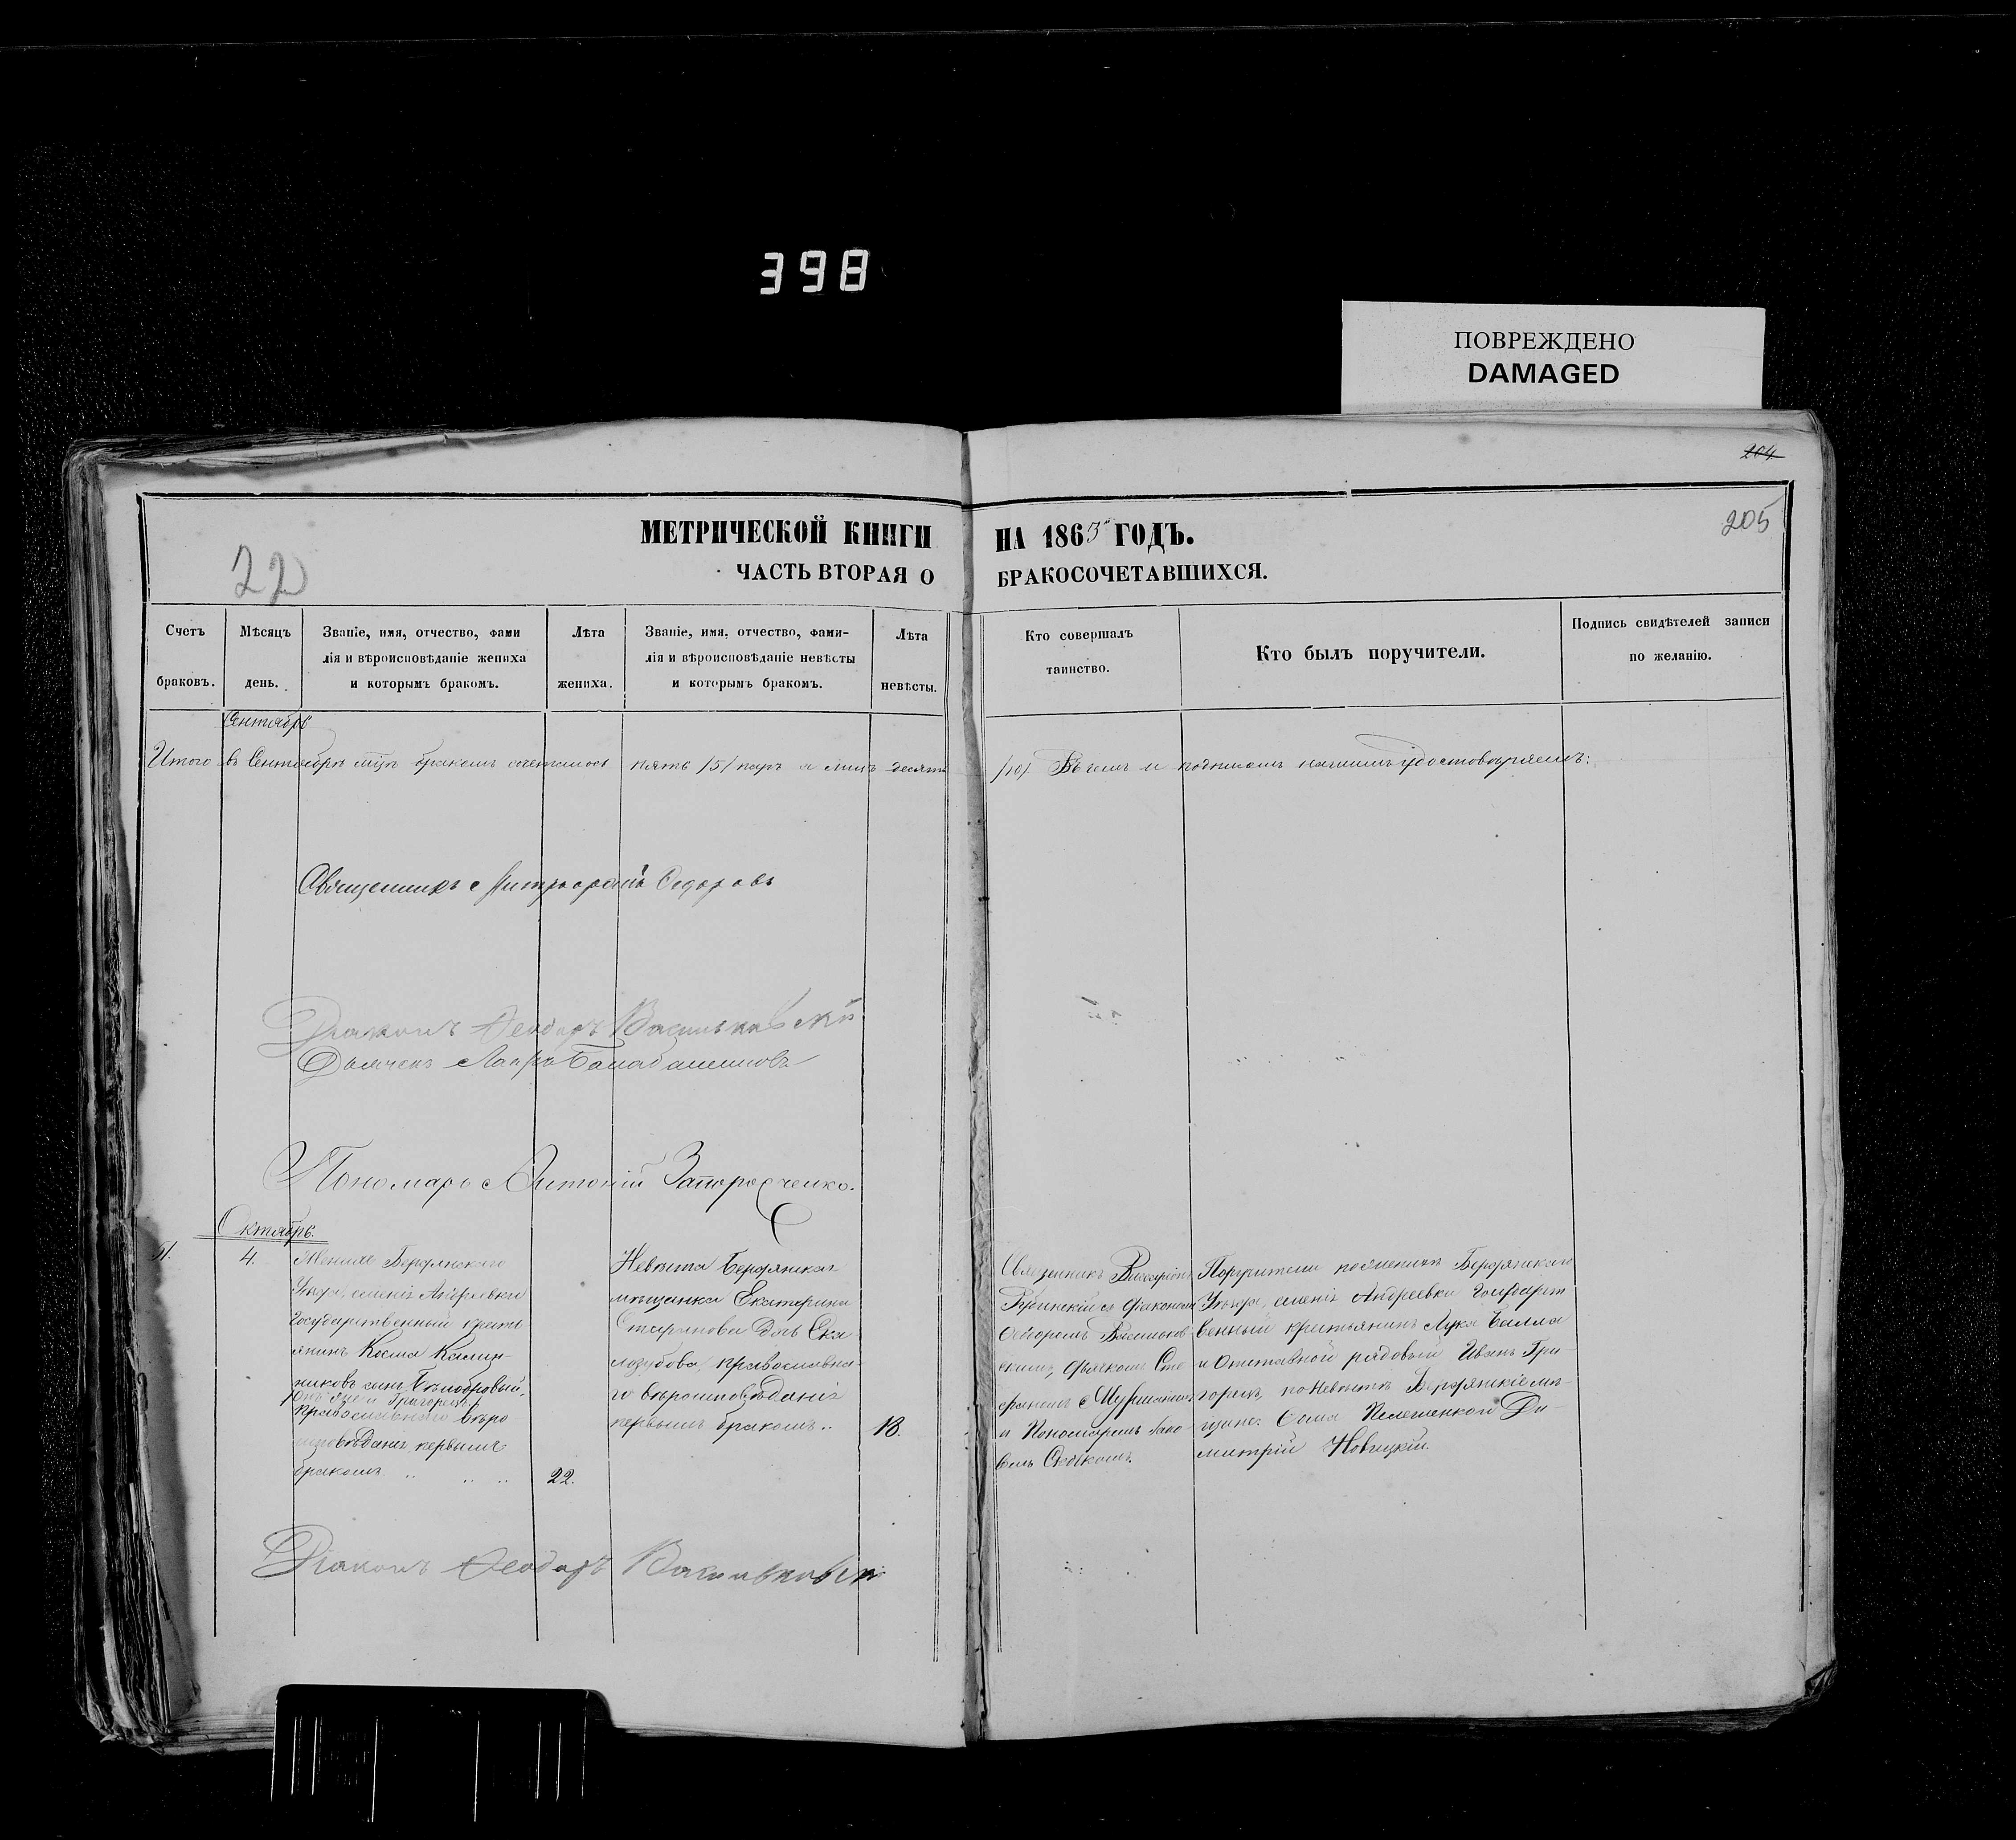 398
ПОВРЕЖДЕНО
DAMAGED
204
205
22
МЕТРИЧЕСКОЙ КНИГИ НА 1865 ГОДЪ.
ЧАСТЬ ВТОРАЯ О БРАКОСОЧЕТАВШИХСЯ.
Счетъ
браковъ.
Мѣсяцъ
день.
Званіе, имя, отчество, фами
лія и вѣроисповѣданіе жениха
и которымъ бракомъ.
Лѣта
жениха.
Званіе, имя, отчество, фами-
лія и вѣроисповѣданіе невѣсты
и которымъ бракомъ.
Лѣта
невѣсты.
Кто совершалъ
таинство.
Кто былъ поручители.
Подпись свидѣтелей записи
по желанію.
Сентябрь
Итого въ Сентябрѣ мцѣ бракомъ сочеталось пять /5/ паръ а лицъ десять /10/. Въ чемъ и подписомъ нашимъ удостовѣряемъ:
Священникъ Митрофанъ Ѳедоровъ
Діаконъ Ѳеодоръ Васильковскій
Дьячекъ
Пономарь Антоній Запорожченко.
Октябрь.
4.
Женихъ Бердянскаго
Уѣзда, селенія Андреевки
Государственный кресть
янинъ Косма Калин-
никовъ сынъ Бѣлобровый,
онъ же и Григорьевъ
Православнаго вѣро
исповѣданія, первымъ
бракомъ
22.
Невѣста Бердянская
мѣщанка Екатерина
Стефанова дочь Ска
лозубова, православна
го вѣроисповѣданія
первымъ бракомъ
18.
Священникъ Виссаріонъ
съ діакономъ
Ѳеодоромъ Васильков
скимъ, дьячкомъ Сте
фаномъ
и Пономаремъ Яко
вомъ
Поручители по женихѣ Бердянскаго
Уѣзда, селенія Андреевки Государст
венный крестьянинъ Лука Балла
и Отставной рядовый Иванъ Гри-
горьевъ, по Невѣстѣ Бердянскіе мѣ-
щане: Ѳома и Ди-
митрій Новицкій.
Діаконъ Ѳеодоръ Васильковскій